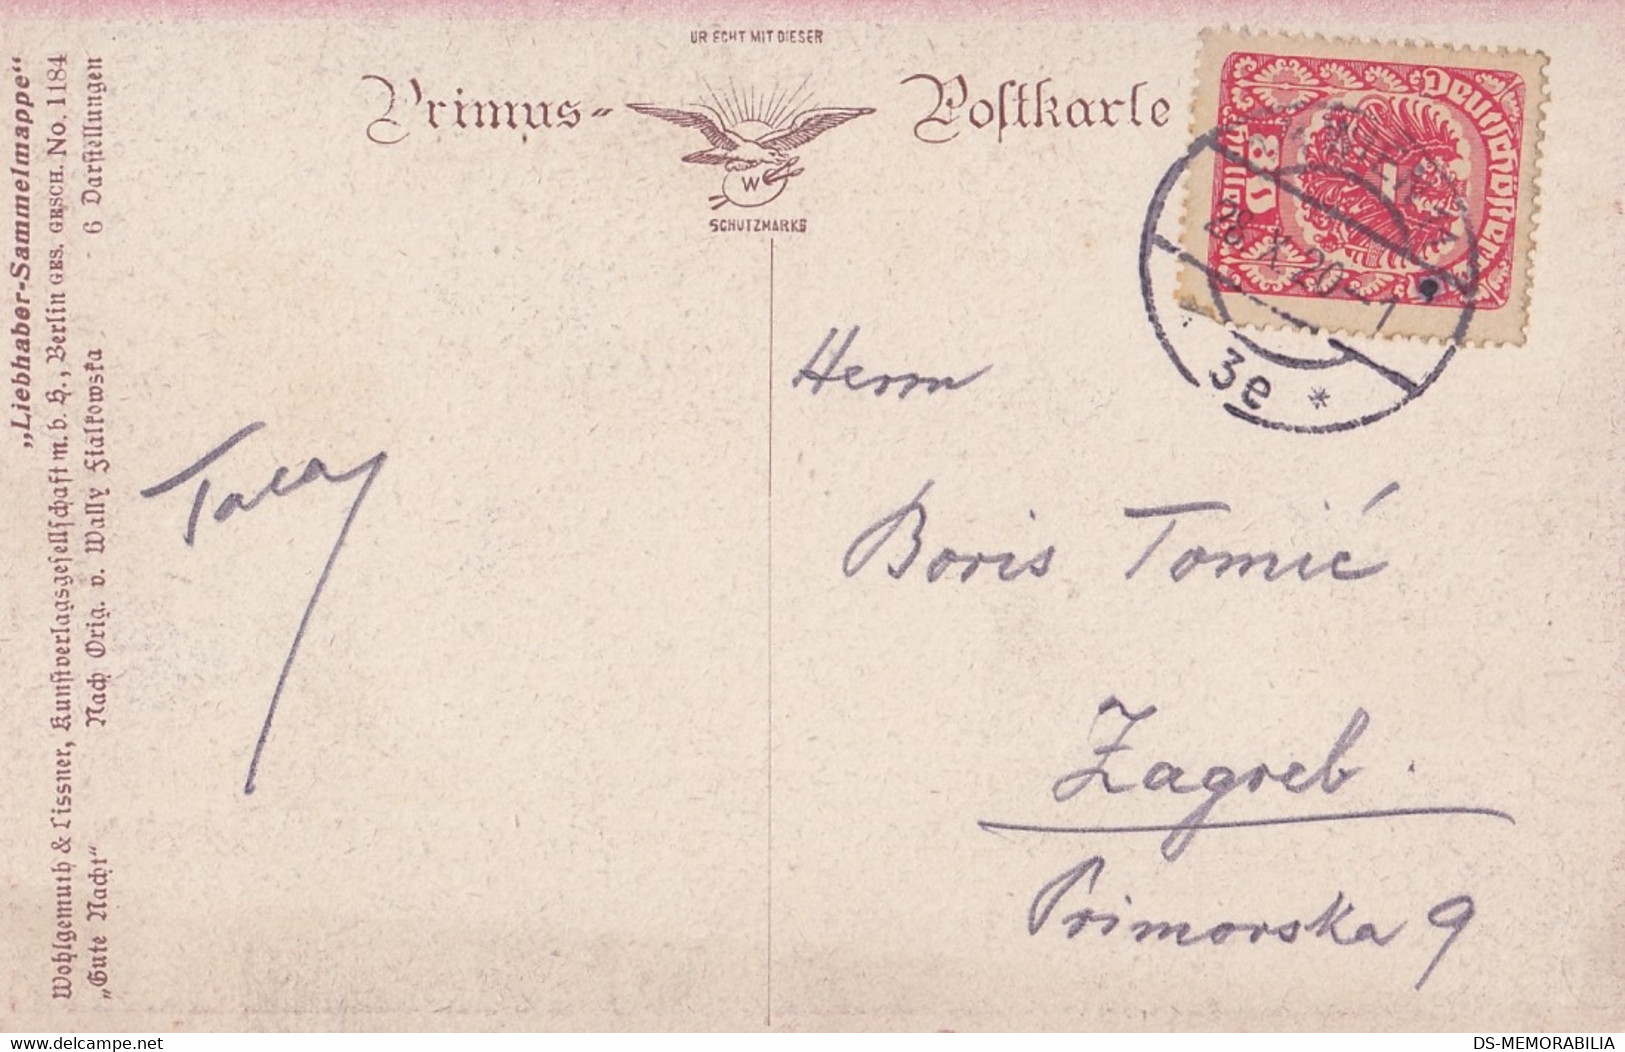 „Liebhaber-Sammelmappe“
Wohlgemuth & Lissner, Kunstverlagsgesellschaft m. b. H., Berlin GES. GESCH. No. 1184
„Gute Nacht“ Nach Orig. v. Wally Fialkowska 6 Darstellungen
UR ECHT MIT DIESER
Primus-
Postkarte
W
SCHUTZMARKE
80
Deutschösterr
28. X. 20 - 1
3e *
Herrn
Boris Tomić
Zagreb.
Primorska 9
DS-MEMORABILIA
delcampe.net